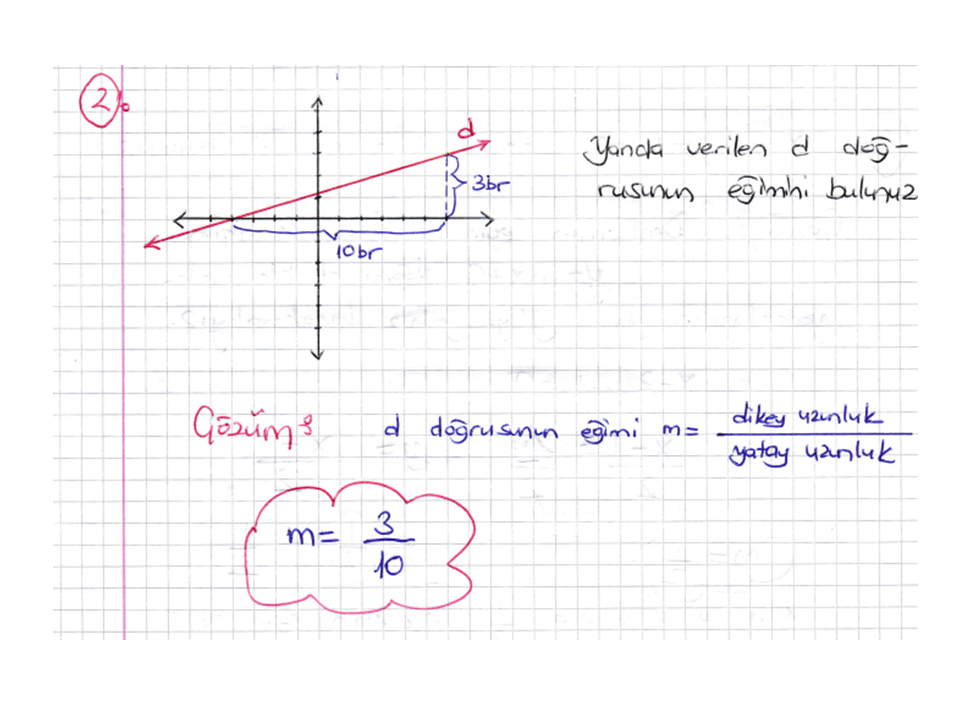 2.
d
3br
10br
Yanda verilen d doğ-
rusunun eğimini bulunuz
Çözüm:
d doğrusunun eğimi m = dikey uzunluk
yatay uzunluk
m = 3
10